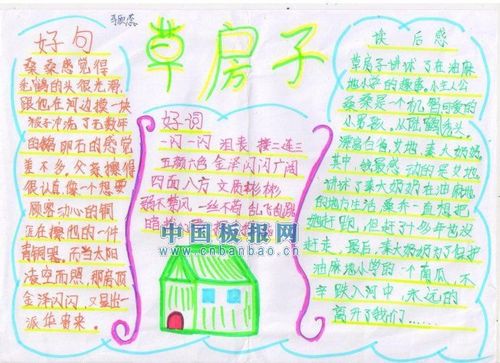 张蕊
草房子
好句
桑桑感觉得
秃鹤的头很光滑
跟他在河边摸一块
被水冲洗了无数年
的鹅卵石的感觉
差不多。父亲擦得
很认真,像个想要
顾客动心的铜
匠在擦他的一件
青铜器。而当太阳
凌空而照,那屋顶
金泽闪闪,又显出一
派华贵来。
好词
一闪一闪 接二连三
五颜六色 金泽闪闪 广阔
四面八方 文质彬彬
弱不禁风 一丝不苟 乱飞乱跳
中国板报网
www.cnbanbao.cn
读后感
草房子讲述了在油麻
地小学的趣事,小主人公
桑桑是个机智可爱的
小男孩。从陆鹤秃头,
漂离白雀,艾地,秦大奶奶
其中,做最感动的是艾地
讲述了秦大奶奶在油麻地
的地方生活,乔一直想把
她赶跑,但赶了许多年也没
赶走,最后,秦大奶奶为了保护
油麻地小学的一个南瓜,不
幸跌入河中,永远的
离开了我们……